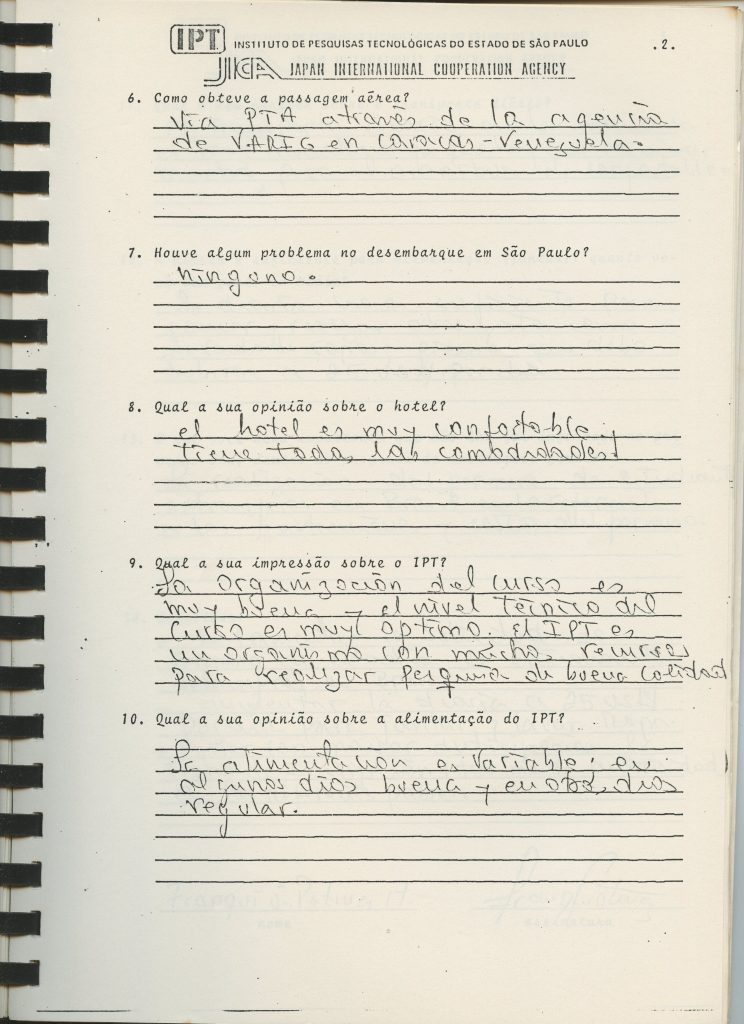 IPT INSTITUTO DE PESQUISAS TECNOLÓGICAS DO ESTADO DE SÃO PAULO .2.
JICA JAPAN INTERNATIONAL COOPERATION AGENCY
6. Como obteve a passagem aérea?
Via PTA através de la agencia
de VARIG en Caracas - Venezuela.
7. Houve algum problema no desembarque em São Paulo?
ninguno.
8. Qual a sua opinião sobre o hotel?
el hotel es muy confortable y
tiene todas las comodidades.
9. Qual a sua impressão sobre o IPT?
La organización del curso es
muy buena y el nivel técnico del
curso es muy optimo. El IPT es
un organismo con muchos recursos
para realizar pesquisa de buena calidad
10. Qual a sua opinião sobre a alimentação do IPT?
La alimentacion es variable; en
algunos dias buena y en otros dias
regular.